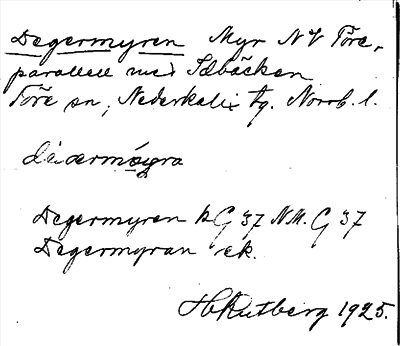 Degermyren Myr NV Töre,
parallell med Idbäcken
Töre sn, Nederkalix tg. Norrb. l.
Degermyren kG 37 NM. G 37
Degermyran ek.
H Rutberg 1925.